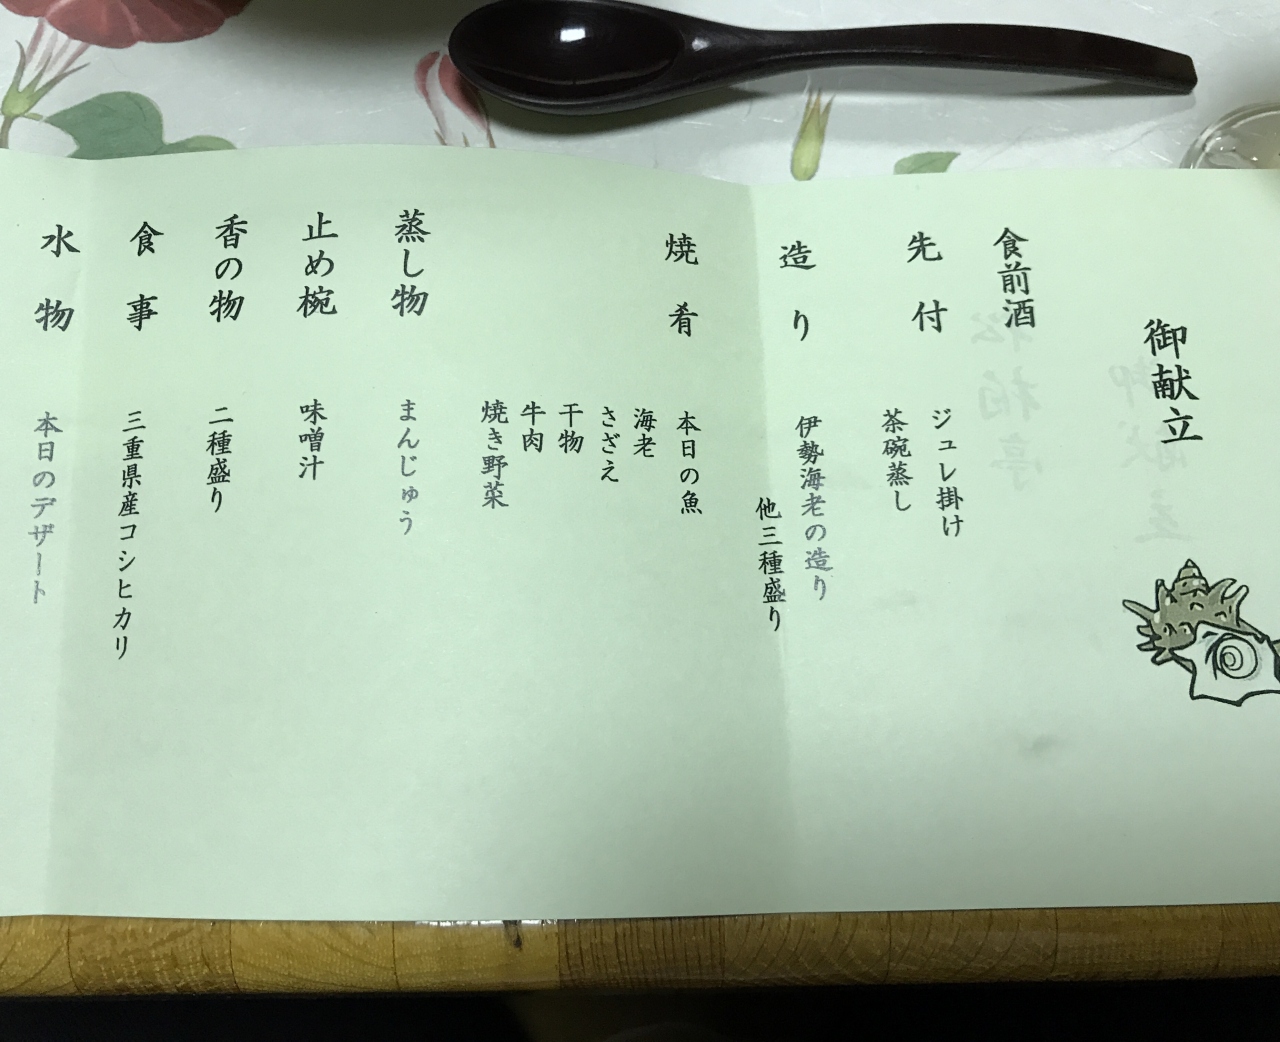 御献立
食前酒
先付
ジュレ掛け
茶碗蒸し
造り
伊勢海老の造り
他三種盛り
焼肴
本日の魚
海老
さざえ
干物
牛肉
焼き野菜
蒸し物
まんじゅう
止め椀
味噌汁
香の物
二種盛り
食事
三重県産コシヒカリ
水物
本日のデザート